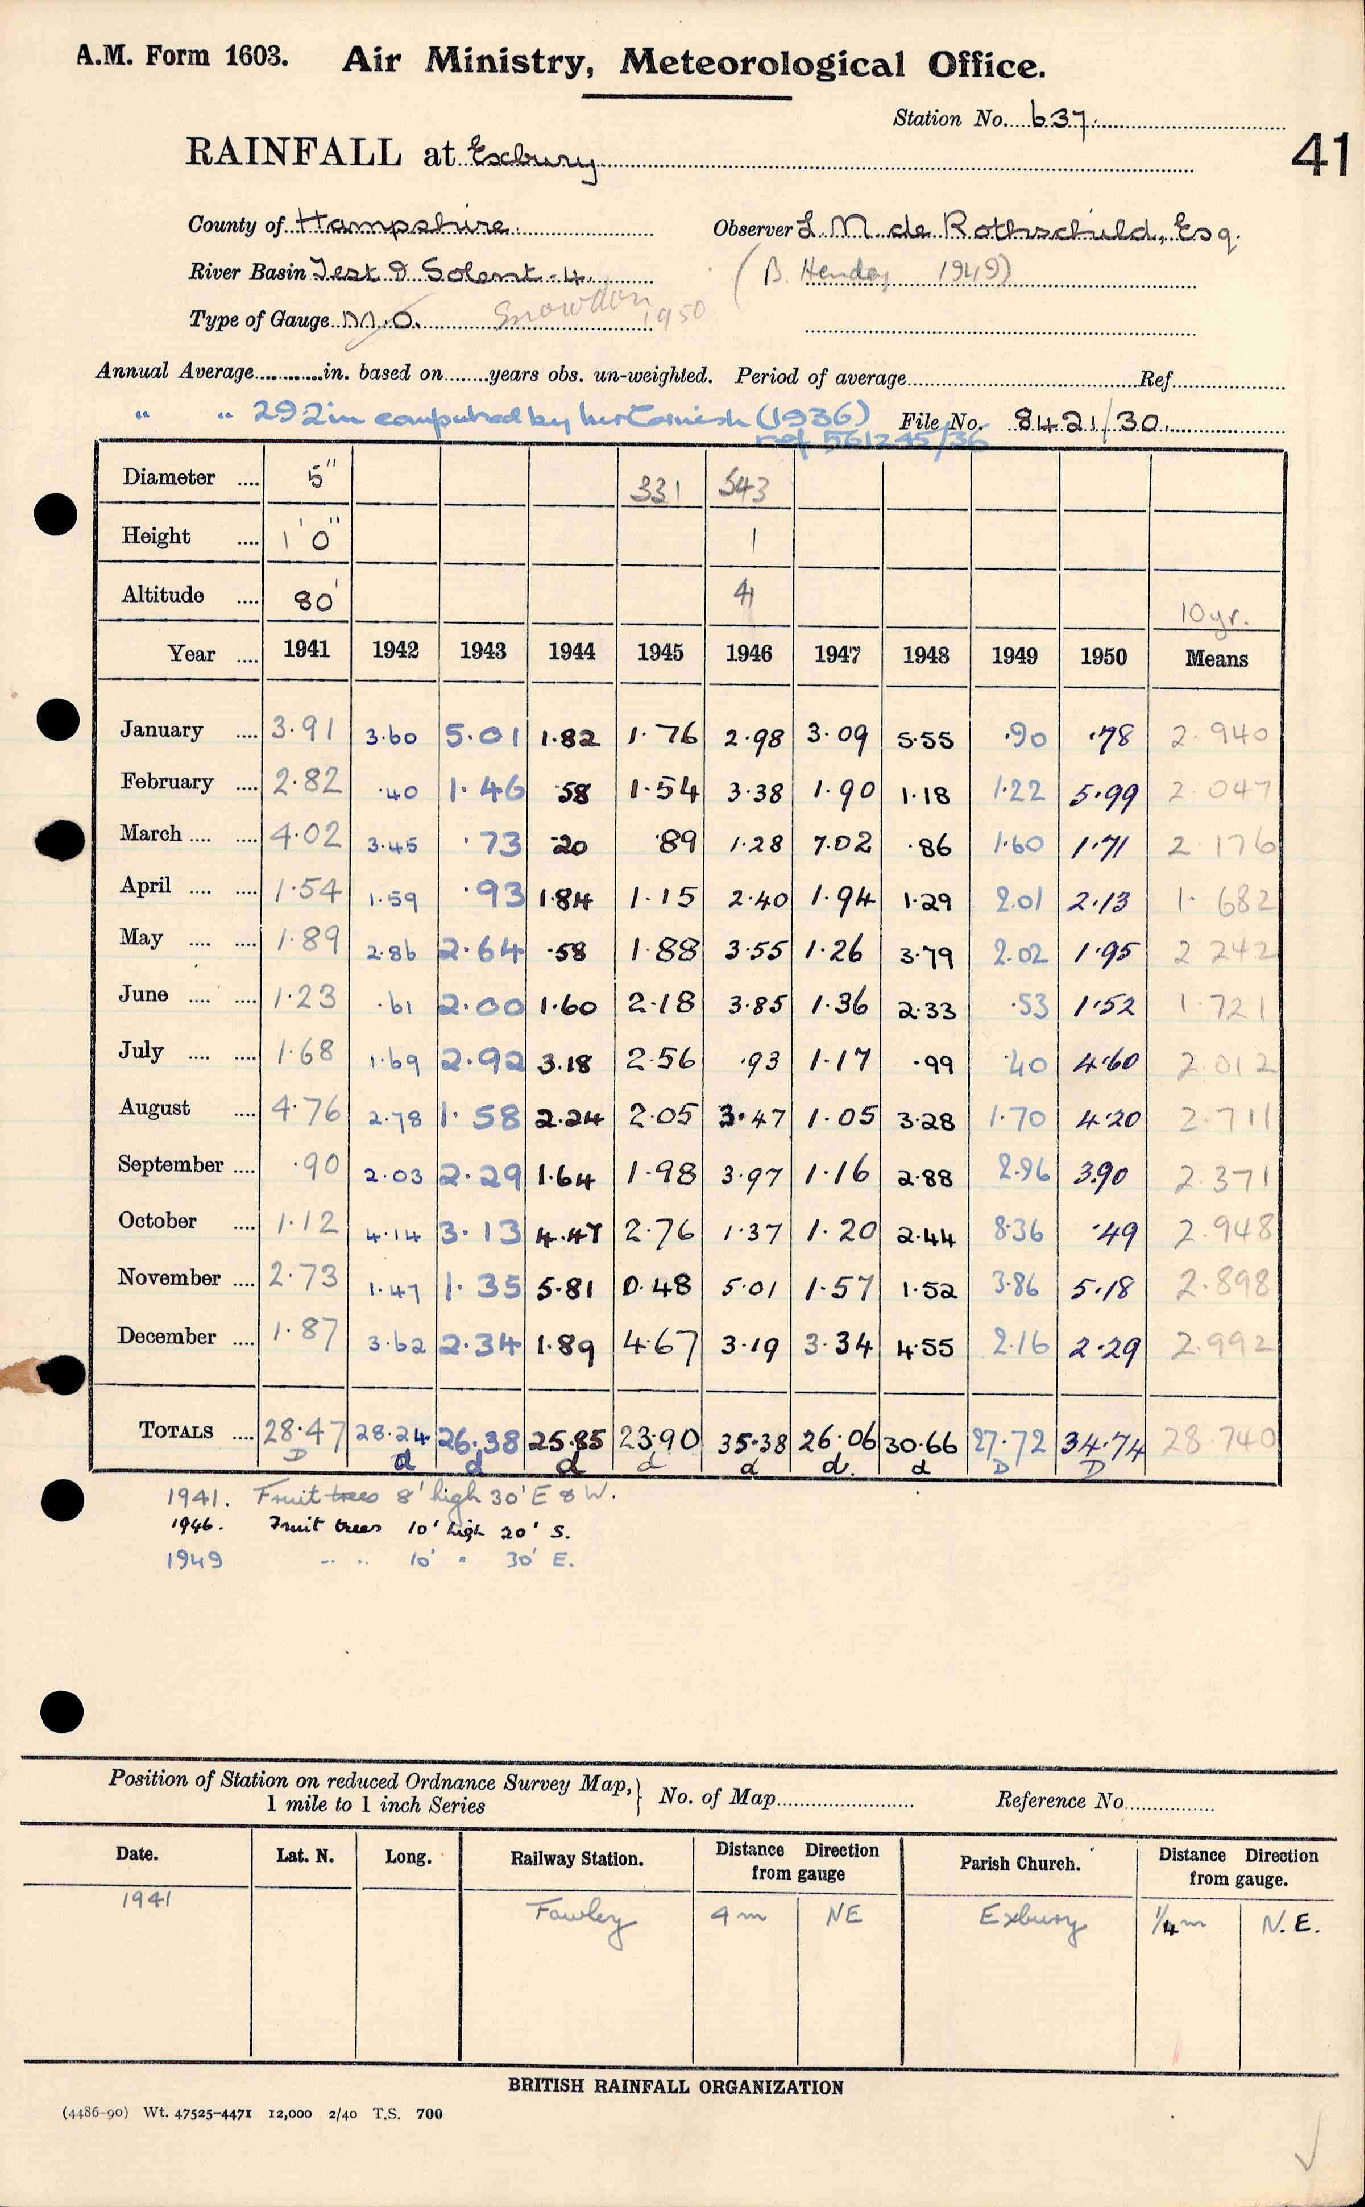 A.M. Form 1603. Air Ministry, Meteorological Office.
Station No. 637.
RAINFALL at Exbury
41
County of Hampshire. Observer L. M. de Rothschild, Esq.
River Basin Test & Solent - 4. (B. Henday 1949)
Type of Gauge M.O. Snowdon 1950
Annual Average............in. based on........years obs. un-weighted. Period of average Ref.
" " 29.2 in computed by (1936) File No. 8421/30
ref 561245/36
Diameter .... 5" 331 543
Height .... 1' 0" 1
Altitude .... 80' 41 10 yr.
Year .... 1941 1942 1943 1944 1945 1946 1947 1948 1949 1950 Means
January .... 3.91 3.60 5.01 1.82 1.76 2.98 3.09 5.55 .90 .78 2.940
February .... 2.82 .40 1.46 .58 1.54 3.38 1.90 1.18 1.22 5.99 2.047
March .... .... 4.02 3.45 .73 .20 .89 1.28 7.02 .86 1.60 1.71 2.176
April .... .... 1.54 1.59 .93 1.84 1.15 2.40 1.94 1.29 2.01 2.13 1.682
May .... .... 1.89 2.86 2.64 .58 1.88 3.55 1.26 3.79 2.02 1.95 2.242
June .... .... 1.23 .61 2.00 1.60 2.18 3.85 1.36 2.33 .53 1.52 1.721
July .... .... 1.68 1.69 2.92 3.18 2.56 .93 1.17 .99 .40 4.60 2.012
August .... 4.76 2.78 1.58 2.24 2.05 3.47 1.05 3.28 1.70 4.20 2.711
September .... .90 2.03 2.29 1.64 1.98 3.97 1.16 2.88 2.96 3.90 2.371
October .... 1.12 4.14 3.13 4.47 2.76 1.37 1.20 2.44 8.36 .49 2.948
November .... 2.73 1.47 1.35 5.81 0.48 5.01 1.57 1.52 3.86 5.18 2.898
December .... 1.87 3.62 2.34 1.89 4.67 3.19 3.34 4.55 2.16 2.29 2.992
TOTALS .... 28.47 28.24 26.38 25.85 23.90 35.38 26.06 30.66 27.72 34.74 28.740
D d d d d d d. d D D
1941. Fruit trees 8' high 30' E & W.
1946. Fruit trees 10' high 20' S.
1949 " " 10' " 30' E.
Position of Station on reduced Ordnance Survey Map, } No. of Map Reference No.
1 mile to 1 inch Series
Date. Lat. N. Long. Railway Station. Distance Direction from gauge Parish Church. Distance Direction from gauge.
1941 Fawley 4 m NE Exbury 1/4 m N.E.
BRITISH RAINFALL ORGANIZATION
(4486-90) Wt. 47525-4471 12,000 2/40 T.S. 700